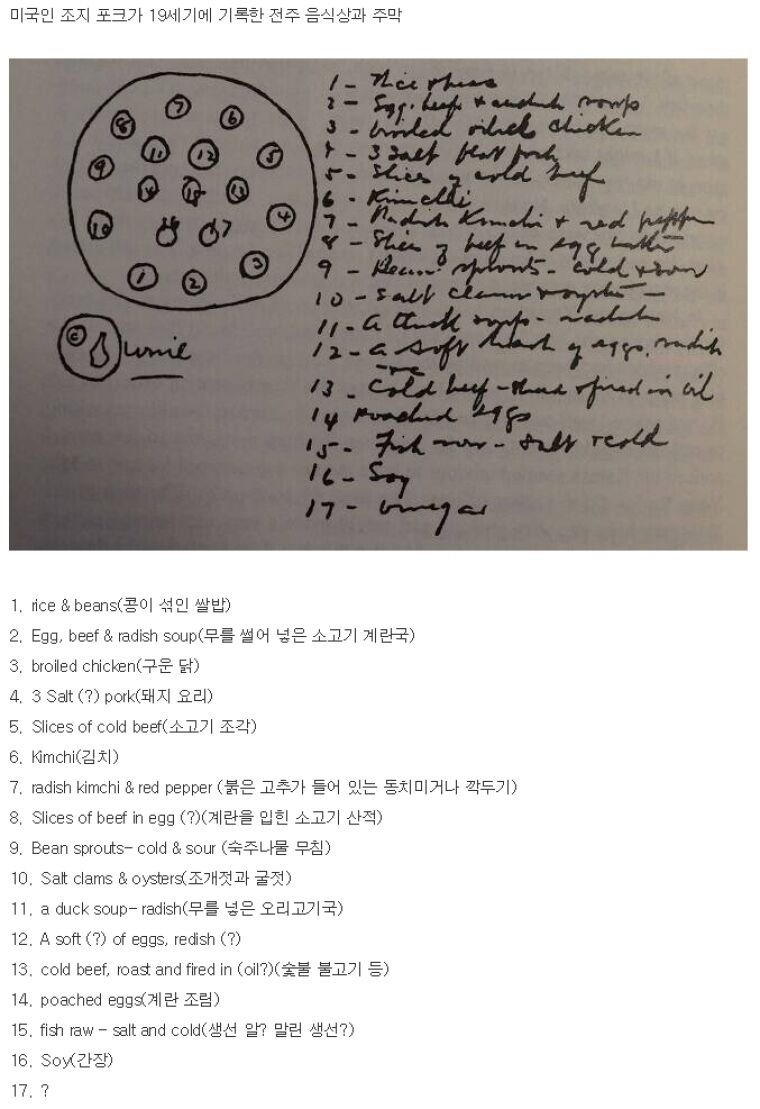 미국인 조지 포크가 19세기에 기록한 전주 음식상과 주막
7
8 6
11 12 5
9
14 15 13
10 16 17 4
1 2 3
wine
1 - Rice & beans
2 - Egg, beef & radish soup
3 - broiled chicken
4 - 3 Salt pork
5 - Slices of cold beef
6 - Kimchi
7 - Radish Kimchi & red pepper
8 - Slices of beef in egg batter
9 - Bean sprouts - cold & sour
10 - Salt clams & oysters -
11 - a duck soup - radish
12 - a soft hash of eggs, radish
13 - Cold beef - & fried in oil
14 Poached eggs
15 - Fish - salt & cold
16 - Soy
17 - vinegar
1. rice & beans(콩이 섞인 쌀밥)
2. Egg, beef & radish soup(무를 썰어 넣은 소고기 계란국)
3. broiled chicken(구운 닭)
4. 3 Salt (?) pork(돼지 요리)
5. Slices of cold beef(소고기 조각)
6. Kimchi(김치)
7. radish kimchi & red pepper (붉은 고추가 들어 있는 동치미거나 깍두기)
8. Slices of beef in egg (?)(계란을 입힌 소고기 산적)
9. Bean sprouts- cold & sour (숙주나물 무침)
10. Salt clams & oysters(조개젓과 굴젓)
11. a duck soup- radish(무를 넣은 오리고기국)
12. A soft (?) of eggs, redish (?)
13. cold beef, roast and fired in (oil?)(숯불 불고기 등)
14. poached eggs(계란 조림)
15. fish raw - salt and cold(생선 알? 말린 생선?)
16. Soy(간장)
17. ?